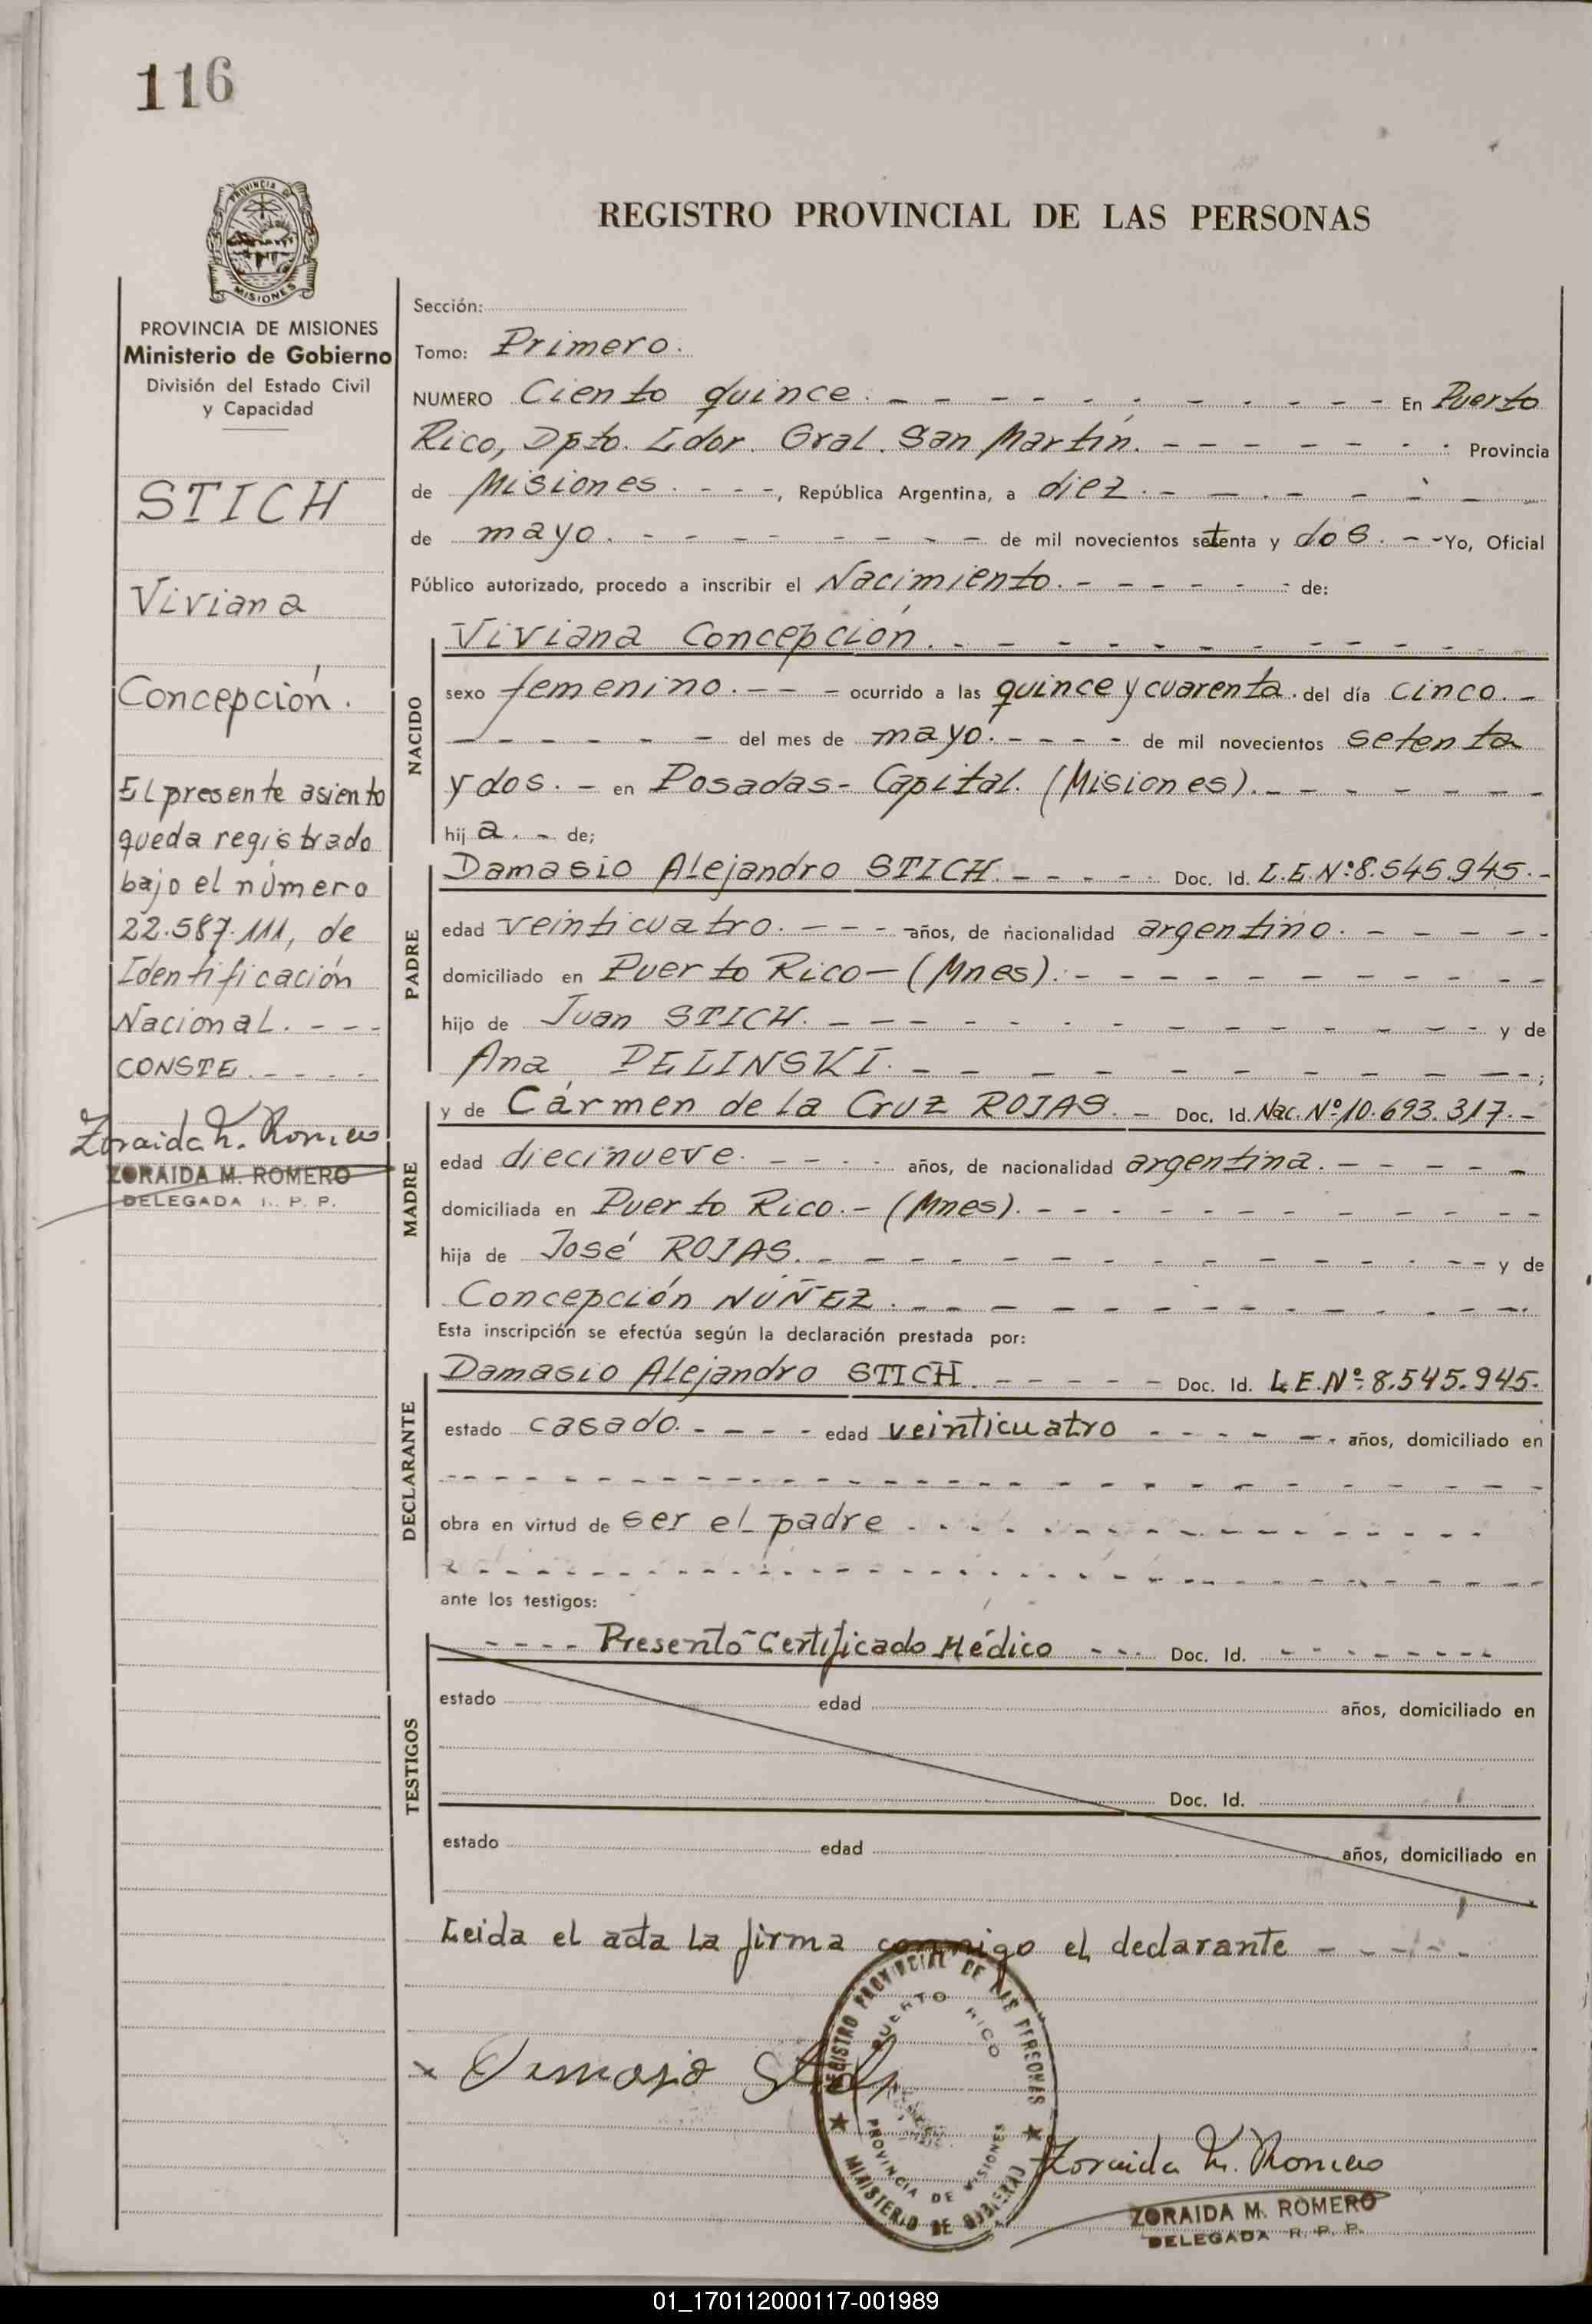 116
PROVINCIA DE
MISIONES
PROVINCIA DE MISIONES
Ministerio de Gobierno
División del Estado Civil
y Capacidad
STICH
Viviana
Concepción.
El presente asiento
queda registrado
bajo el número
22.587.111, de
Identificación
Nacional. - - -
CONSTE. - - - -
Zoraida M. Romero
ZORAIDA M. ROMERO
DELEGADA R. P. P.
REGISTRO PROVINCIAL DE LAS PERSONAS
Sección:
Tomo: Primero.
NUMERO Ciento quince. - - - - - - - - - - En Puerto
Rico, Dpto. Ldor. Gral. San Martín. - - - - - - - Provincia
de Misiones. - - -, República Argentina, a diez. - - - - - - - -
de mayo. - - - - - - - - de mil novecientos setenta y dos. - - Yo, Oficial
Público autorizado, procedo a inscribir el Nacimiento. - - - - - - de:
NACIDO
Viviana Concepción. - - - - - - - - - - -
sexo femenino. - - - ocurrido a las quince y cuarenta. del día cinco. -
- - - - - - del mes de mayo. - - - - de mil novecientos setenta
y dos. - en Posadas - Capital. (Misiones). - - - - - - -
hij a. - de;
PADRE
Damasio Alejandro STICH. - - - - - Doc. Id. L.E. Nº: 8.545.945. -
edad veinticuatro. - - - - años, de nacionalidad argentino. - - - - -
domiciliado en Puerto Rico - (Mnes). - - - - - - - - - -
hijo de Juan STICH. - - - - - - - - - - - - y de
Ana PELINSKI. - - - - - - - - - - -;
MADRE
y de Cármen de la Cruz ROJAS. - Doc. Id. Nac. Nº 10.693.317. -
edad diecinueve. - - - - años, de nacionalidad argentina. - - - - -
domiciliada en Puerto Rico. - (Mnes). - - - - - - - - - -
hija de José ROJAS. - - - - - - - - - - - - y de
Concepción NÚÑEZ. - - - - - - - - - - -.
Esta inscripción se efectúa según la declaración prestada por:
DECLARANTE
Damasio Alejandro STICH. - - - - - Doc. Id. L.E. Nº: 8.545.945.
estado casado. - - - - edad veinticuatro - - - - - -. años, domiciliado en
- - - - - - - - - - - - - - - - - - - -
obra en virtud de ser el padre - - - - - - - - - - - -
- - - - - - - - - - - - - - - - - - - -
ante los testigos:
TESTIGOS
- - - - Presentó Certificado Médico - - - Doc. Id. - - - - - - -
estado edad años, domiciliado en
Doc. Id.
estado edad años, domiciliado en
Leida el acta la firma conmigo el declarante - - - - -
REGISTRO PROVINCIAL DE LAS PERSONAS
PUERTO RICO
PROVINCIA DE MISIONES
MINISTERIO DE GOBIERNO
x Damasio Stich
Zoraida M. Romero
ZORAIDA M. ROMERO
DELEGADA R. P. P.
01_170112000117-001989